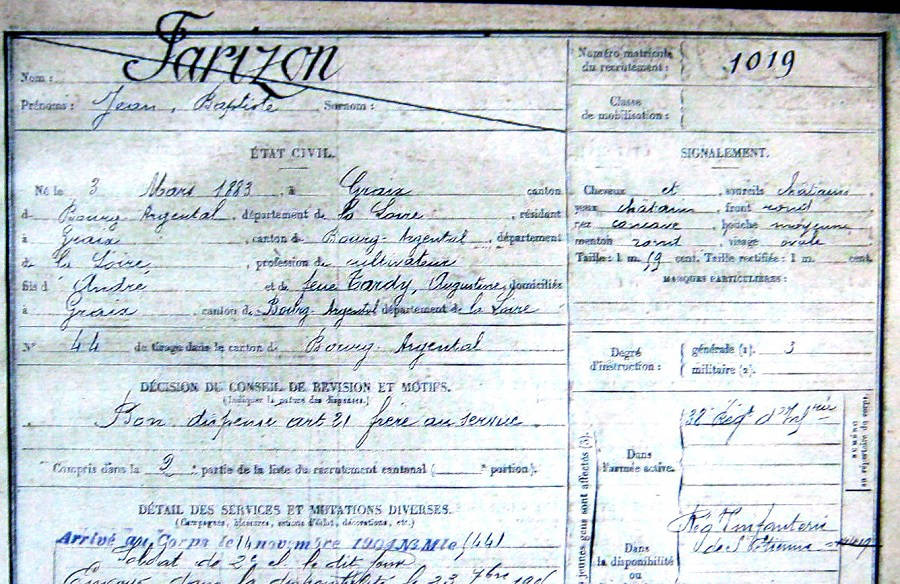 Farizon
Nom :
Prénoms : Jean, Baptiste Surnom :
Numéro matricule
du recrutement : 1019
Classe
de mobilisation :
ÉTAT CIVIL.
Né le 3 Mars 1883, à Graix canton
d Bourg Argental, département de la Loire, résidant
à Graix, canton de Bourg-Argental, département
de la Loire, profession de cultivateur
fils d André et de feue Tardy, Augustine, domiciliés
à Graix, canton de Bourg-Argental département de la Loire
N° 44 de tirage dans le canton de Bourg-Argental
SIGNALEMENT.
Cheveux et sourcils châtains,
yeux châtains, front rond,
nez concave, bouche moyenne,
menton rond, visage ovale
Taille : 1 m. 69 cent. Taille rectifiée : 1 m. cent.
MARQUES PARTICULIÈRES :
Degré
d'instruction :
générale (1). 3
militaire (2).
DÉCISION DU CONSEIL DE RÉVISION ET MOTIFS.
(Indiquer la nature des dispenses.)
Bon dispensé art 21 frère au service
Compris dans la 2e partie de la liste du recrutement cantonal ( e portion).
DÉTAIL DES SERVICES ET MUTATIONS DIVERSES.
(Campagnes, blessures, actions d'éclat, décorations, etc.)
Arrivé au Corps le 14 novembre 1904 N° Mle 1441
Soldat de 2e cl. le dit jour
dans la disponibilité le 23 7bre
jeunes gens sont affectés (3).
Dans
l'armée active.
38e Régt d'Infrie
Dans
la disponibilité
ou
Régt d'infanterie
de St Etienne
au répertoire du corps.